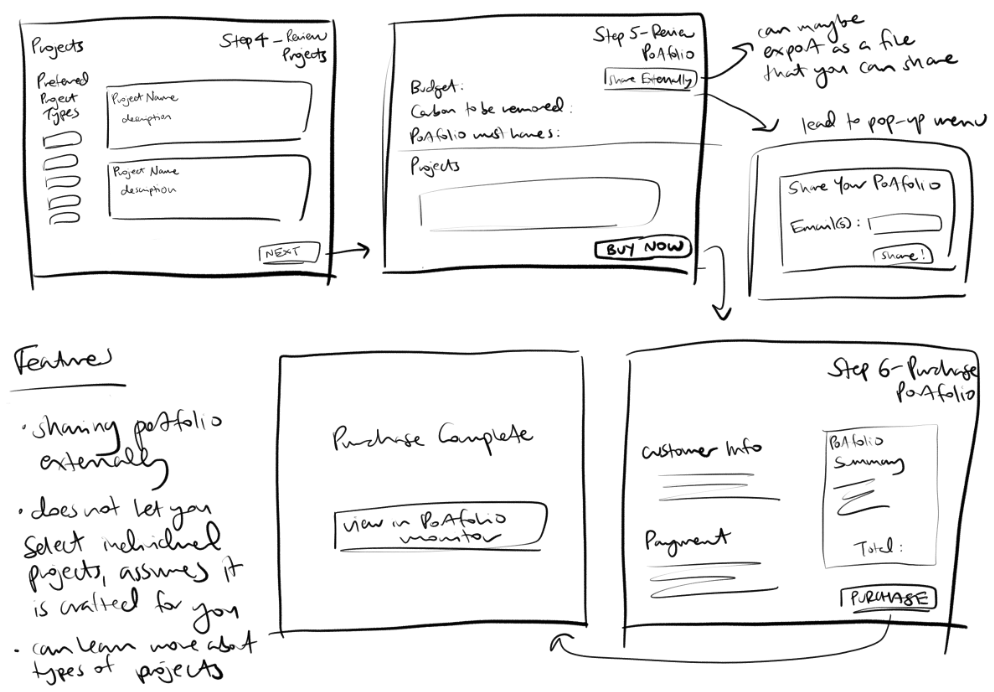 Projects
Step 4 - Review
Projects
Preferred
Project
Types
Project Name
description
Project Name
description
NEXT
Step 5 - Review
Portfolio
Share Externally
Budget:
Carbon to be removed:
Portfolio must haves:
Projects
BUY NOW
can maybe
export as a file
that you can share
lead to pop-up menu
Share Your Portfolio
Email(s):
share!
Features
• sharing portfolio
externally
• does not let you
select individual
projects, assumes it
is crafted for you
• can learn more about
types of projects
Purchase Complete
view in Portfolio
monitor
Step 6 - Purchase
Portfolio
Customer Info
Payment
Portfolio
Summary
Total:
PURCHASE